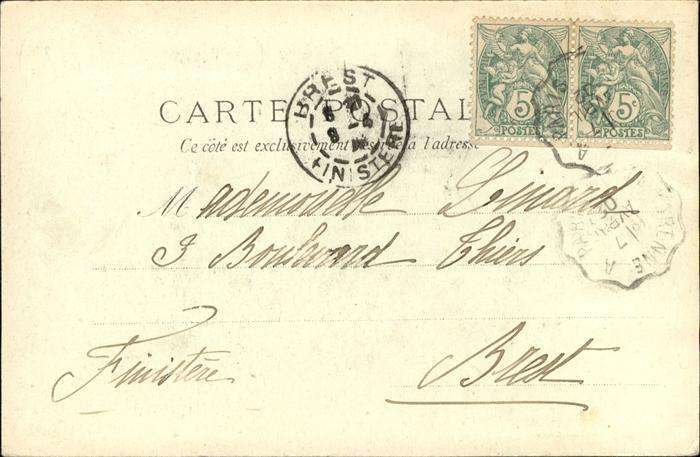 5c 5c
POSTES POSTES
BREST
FINISTERE
CARTE POSTALE
Ce côté est exclusivement réservé à l'adresse
Mademoiselle Linard
3 Boulevard Thiers
Finistère Brest